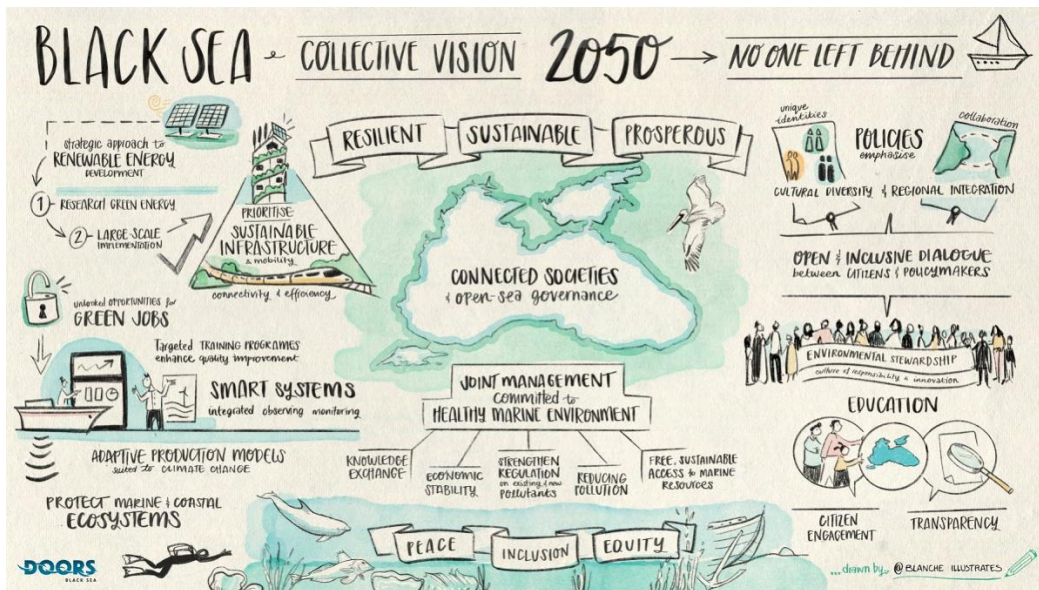 BLACK SEA - COLLECTIVE VISION 2050 → NO ONE LEFT BEHIND
strategic approach to
RENEWABLE ENERGY
DEVELOPMENT
1 RESEARCH GREEN ENERGY
2 LARGE-SCALE
IMPLEMENTATION
PRIORITISE
SUSTAINABLE
INFRASTRUCTURE
& mobility
connectivity & efficiency
unlocked OPPORTUNITIES for
GREEN JOBS
Targeted TRAINING PROGRAMES
enhance quality improvement
SMART SYSTEMS
integrated observing monitoring
ADAPTIVE PRODUCTION MODELS
suited to CLIMATE CHANGE
PROTECT MARINE & COASTAL
ECOSYSTEMS
DOORS
BLACK SEA
RESILIENT SUSTAINABLE PROSPEROUS
CONNECTED SOCIETIES
& open-sea governance
JOINT MANAGEMENT
committed to
HEALTHY MARINE ENVIRONMENT
KNOWLEDGE
EXCHANGE
ECONOMIC
STABILITY
STRENGTHEN
REGULATION
on existing & new
Pollutants
REDUCING
POLLUTION
FREE, SUSTAINABLE
ACCESS to MARINE
RESOURCES
PEACE INCLUSION EQUITY
unique
identities
POLICIES
emphasise
collaboration
CULTURAL DIVERSITY & REGIONAL INTEGRATION
OPEN & INCLUSIVE DIALOGUE
between CITIZENS & POLICYMAKERS
ENVIRONMENTAL STEWARDSHIP
culture of responsibility & innovation
EDUCATION
CITIZEN
ENGAGEMENT
TRANSPARENCY
...drawn by @BLANCHE ILLUSTRATES